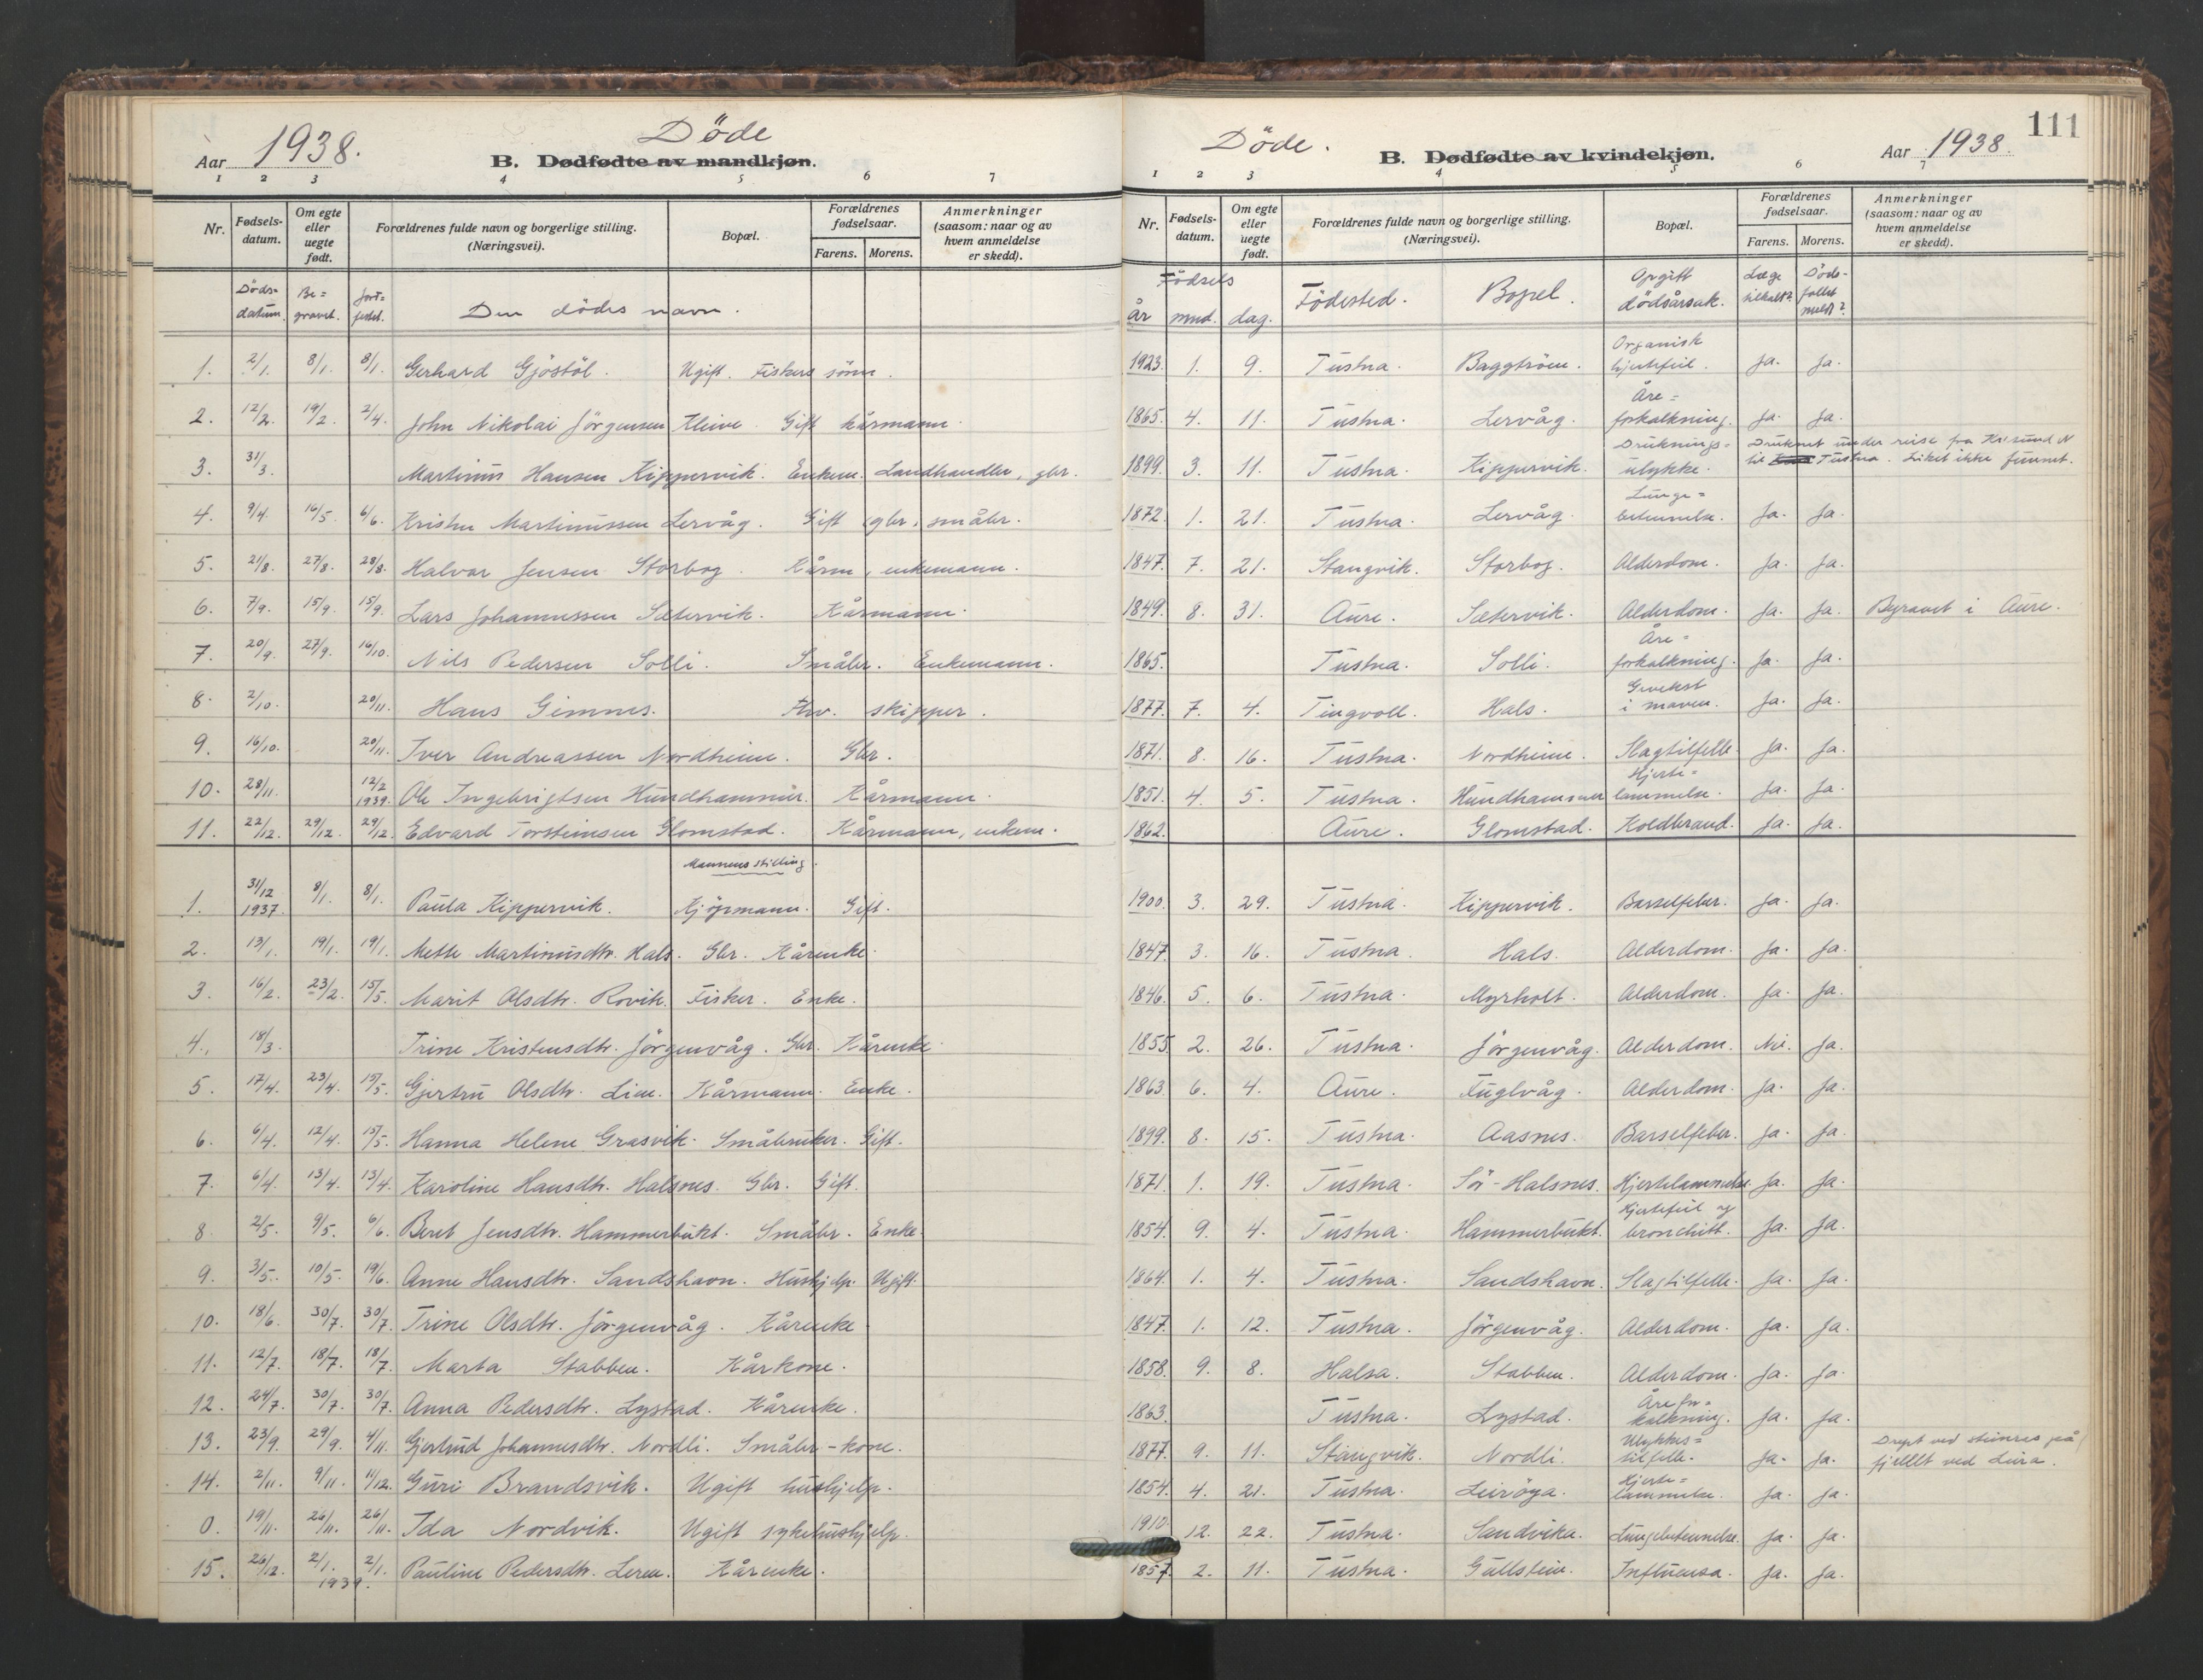 Aar 1938.
Døde
B. Dødfødte av mandkjøn.
1 2 3 4 5 6 7
Nr. Fødsels-datum. Om egte eller uegte født. Forældrenes fulde navn og borgerlige stilling. (Næringsvei). Bopæl. Forældrenes fødselsaar. Farens. Morens. Anmerkninger (saasom: naar og av hvem anmeldelse er skedd).
Døds-datum. Be-gravet. Jord-festet. Den dødes navn.
1. 2/1. 8/1. 8/1. Gerhard Gjöstöl. Ugift. Fiskers sönn.
2. 12/2. 19/2. 2/4. John Nikolai Jörgensen Kleive. Gift kårmann.
3. 31/3. Martinus Hansen Kippervik. Enkem. Landhandler, gbr.
4. 9/4. 16/5. 6/6. Krister Martinussen Lervåg. Gift gbr, småbr.
5. 21/8. 27/8. 28/8. Halvor Jensen Storbog. Kårm, enkemann.
6. 7/9. 15/9. 15/9. Lars Johannessen Sætervik. Kårmann.
7. 20/9. 27/9. 16/10. Nils Pedersen Solli. Småbr. Enkemann.
8. 2/10. 20/11. Hans Gimnes. fhv. skipper.
9. 16/10. 20/11. Iver Andreassen Nordheim. Gbr.
10. 28/11. 12/2 1939. Ole Ingebrigtsen Hundhammer. Kårmann.
11. 22/12. 29/12. 29/12. Edvard Torsteinsen Glomstad. Kårmann, enkem.
Mannens stilling.
1. 31/12 1937. 8/1. 8/1. Paula Kippervik. Kjöpmann. Gift.
2. 13/1. 19/1. 19/1. Mette Martinusdtr. Hals. Gbr. Kårenke.
3. 16/2. 23/2. 15/5. Marit Olsdtr. Rovik. Fisker. Enke.
4. 18/3. Trine Kristensdtr. Jörgenvåg. Gbr. Kårenke.
5. 17/4. 23/4. 15/5. Gjertru Olsdtr. Lien. Kårmann. Enke.
6. 6/4. 12/4. 15/5. Hanna Helene Grasvik. Småbruker. Gift.
7. 6/4. 13/4. 13/4. Karoline Hansdtr. Halsnes. Gbr. Gift.
8. 2/5. 9/5. 6/6. Beret Jensdtr. Hammerbukt. Småbr. Enke.
9. 3/5. 10/5. 19/6. Anne Hansdtr. Sandshavn. Hushjelp. Ugift.
10. 18/6. 30/7. 30/7. Trine Olsdtr. Jörgenvåg. Kårenke
11. 12/7. 18/7. 18/7. Marta Stabben. Kårkone.
12. 24/7. 30/7. 30/7. Anna Pedersdtr. Lystad. Kårenke.
13. 23/9. 29/9. 4/11. Gjertrud Johannesdtr. Nordli. Småbr-kone.
14. 2/11. 9/11. 11/12. Guri Brandsvik. Ugift hushjelp.
0. 19/11. 26/11. 26/11. Ida Nordvik. Ugift sykehushjelp.
15. 26/12. 2/1. 2/1. 1939. Pauline Pedersdtr. Leren. Kårenke.
Døde.
B. Dødfødte av kvindekjøn.
Aar 1938.
111
1 2 3 4 5 6 7
Nr. Fødsels-datum. Om egte eller uegte født. Forældrenes fulde navn og borgerlige stilling. (Næringsvei). Bopæl. Forældrenes fødselsaar. Farens. Morens. Anmerkninger (saasom: naar og av hvem anmeldelse er skedd).
Födsels år mnd. dag. Födested. Bopel. Opgitt dödsårsak. Læge tilkalt? Döds-fallet meldt?
1923. 1. 9. Tustna. Baggtröen. Organisk hjertefeil. Ja. Ja.
1865. 4. 11. Tustna. Lervåg. Åre-forkalkning. Ja. Ja.
1899. 3. 11. Tustna. Kippervik. Druknings-ulykke. Druknet under reise fra Kr.sund N til Tustna. Liket ikke funnet.
1872. 1. 21. Tustna. Lervåg. Lunge-betennelse. Ja. Ja.
1847. 7. 21. Stangvik. Storbog. Alderdom. Ja. Ja.
1849. 8. 31. Aure. Sætervik. Alderdom. Ja. Ja. Begravet i Aure.
1865. Tustna. Solli. Åre-forkalkning. Ja. Ja.
1877. 7. 4. Tingvoll. Hals. Svulst i maven. Ja. Ja.
1871. 8. 16. Tustna. Nordheim. Slagtilfelle. Ja. Ja.
1851. 4. 5. Tustna. Hundhammer Hjerte-lammelse. Ja. Ja.
1862. Aure. Glomstad. Koldbrand. Ja. Ja.
1900. 3. 29. Tustna. Kippervik. Barselfeber. Ja. Ja.
1847. 3. 16. Tustna. Hals. Alderdom. Ja. Ja.
1846. 5. 6. Tustna. Myrholt. Alderdom. Ja. Ja.
1855. 2. 26. Tustna. Jörgenvåg. Alderdom. Nei. Ja.
1863. 6. 4. Aure. Fuglvåg. Alderdom. Ja. Ja.
1899. 8. 15. Tustna. Aasnes. Barselfeber. Ja. Ja.
1871. 1. 19. Tustna. Sör-Halsnes. Hjertelammelse. Ja. Ja.
1854. 9. 4. Tustna. Hammerbukt. Hjertefeil og bronchitt. Ja. Ja.
1864. 1. 4. Tustna. Sandshavn. Slagtilfelle. Ja. Ja.
1847. 1. 12. Tustna. Jörgenvåg. Alderdom. Ja. Ja.
1858. 9. 8. Halsa. Stabben. Alderdom. Ja. Ja.
1863. Tustna. Lystad. Årefor-kalkning. Ja. Ja.
1877. 9. 11. Stangvik. Nordli. Ulykkes-tilfelle. Ja. Ja. Drept ved steinras på fjellet ved Leira.
1854. 4. 21. Tustna. Leiröya. Hjerte-lammelse. Ja. Ja.
1910. 12. 22. Tustna. Sandvika. Lungebetennelse. Ja. Ja.
1857. 2. 11. Tustna. Gullstein. Influensa. Ja. Ja.